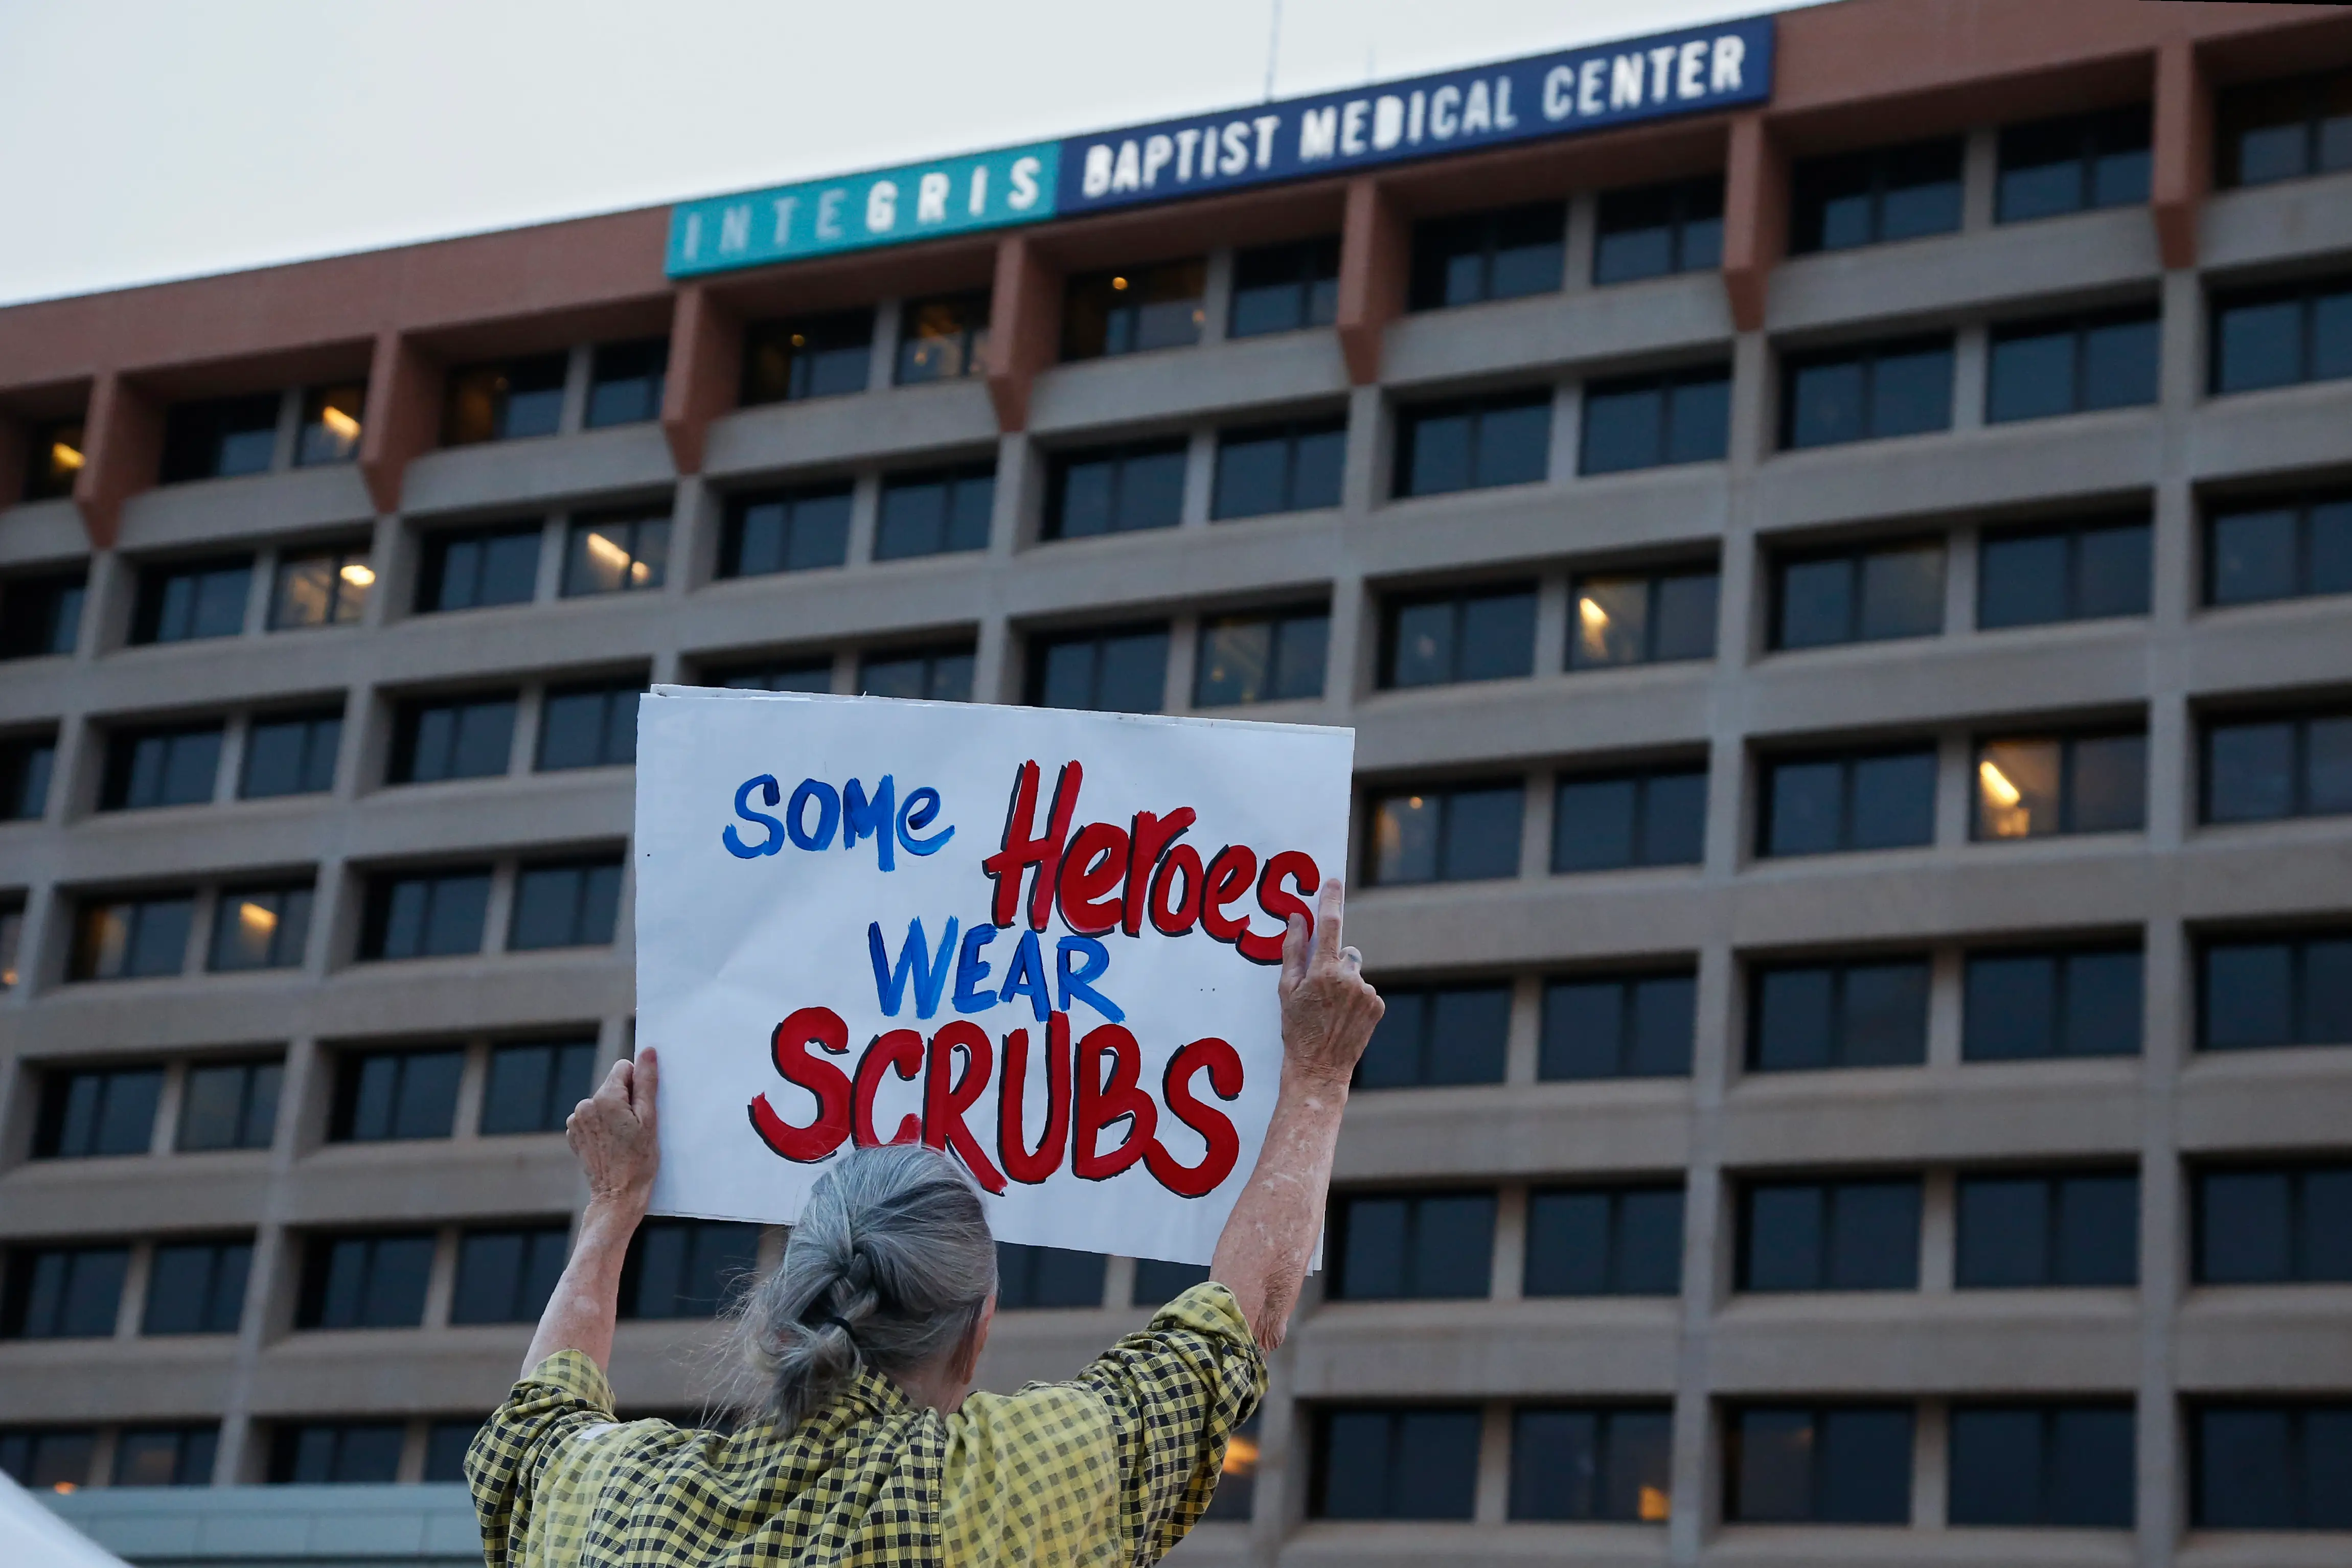 INTEGRIS BAPTIST MEDICAL CENTER
SOMe Heroes
WEAR
SCRUBS